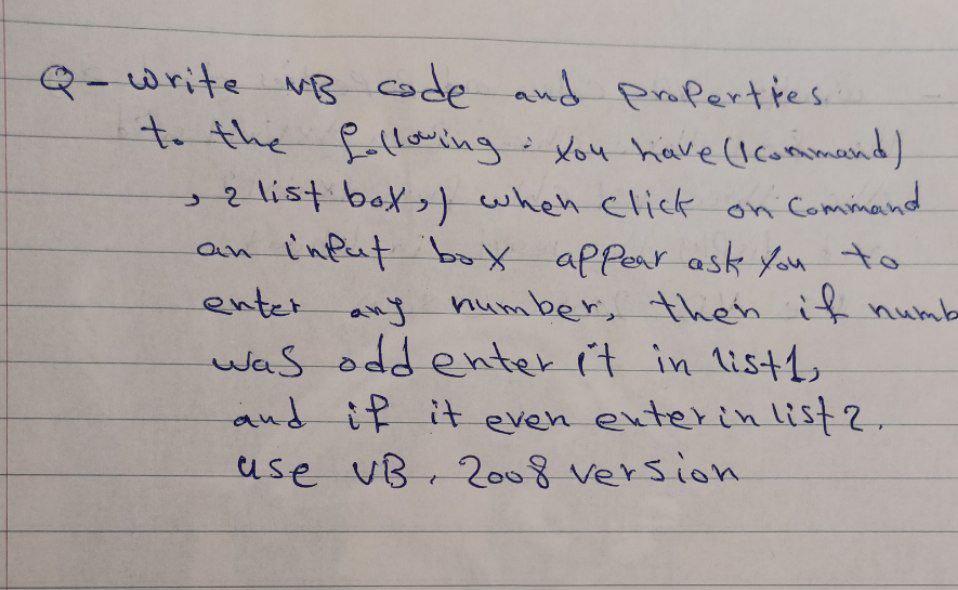 Q - write VB code and properties
to the following : You have (1 command)
, 2 list box, ) when click on Command
an input box appear ask you to
enter any number, then if numb
was odd enter it in list1,
and if it even enter in list 2.
use VB. 2008 version